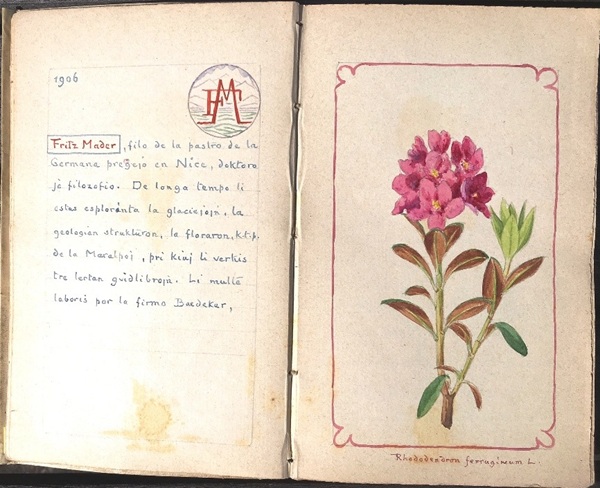 1906
FMA
Fritz Mader, filo de la pastro de la
Germana preĝejo en Nice, doktoro
je filozofio. De longa tempo li
estas esploranta la glaciejojn, la
geologian strukturon, la floraron, k.t.p.
de la Maralpoj, pri kiuj li verkis
tre lertan gvidlibrojn. Li multe
laboris por la firmo Baedeker,
Rhododendron ferrugineum L.